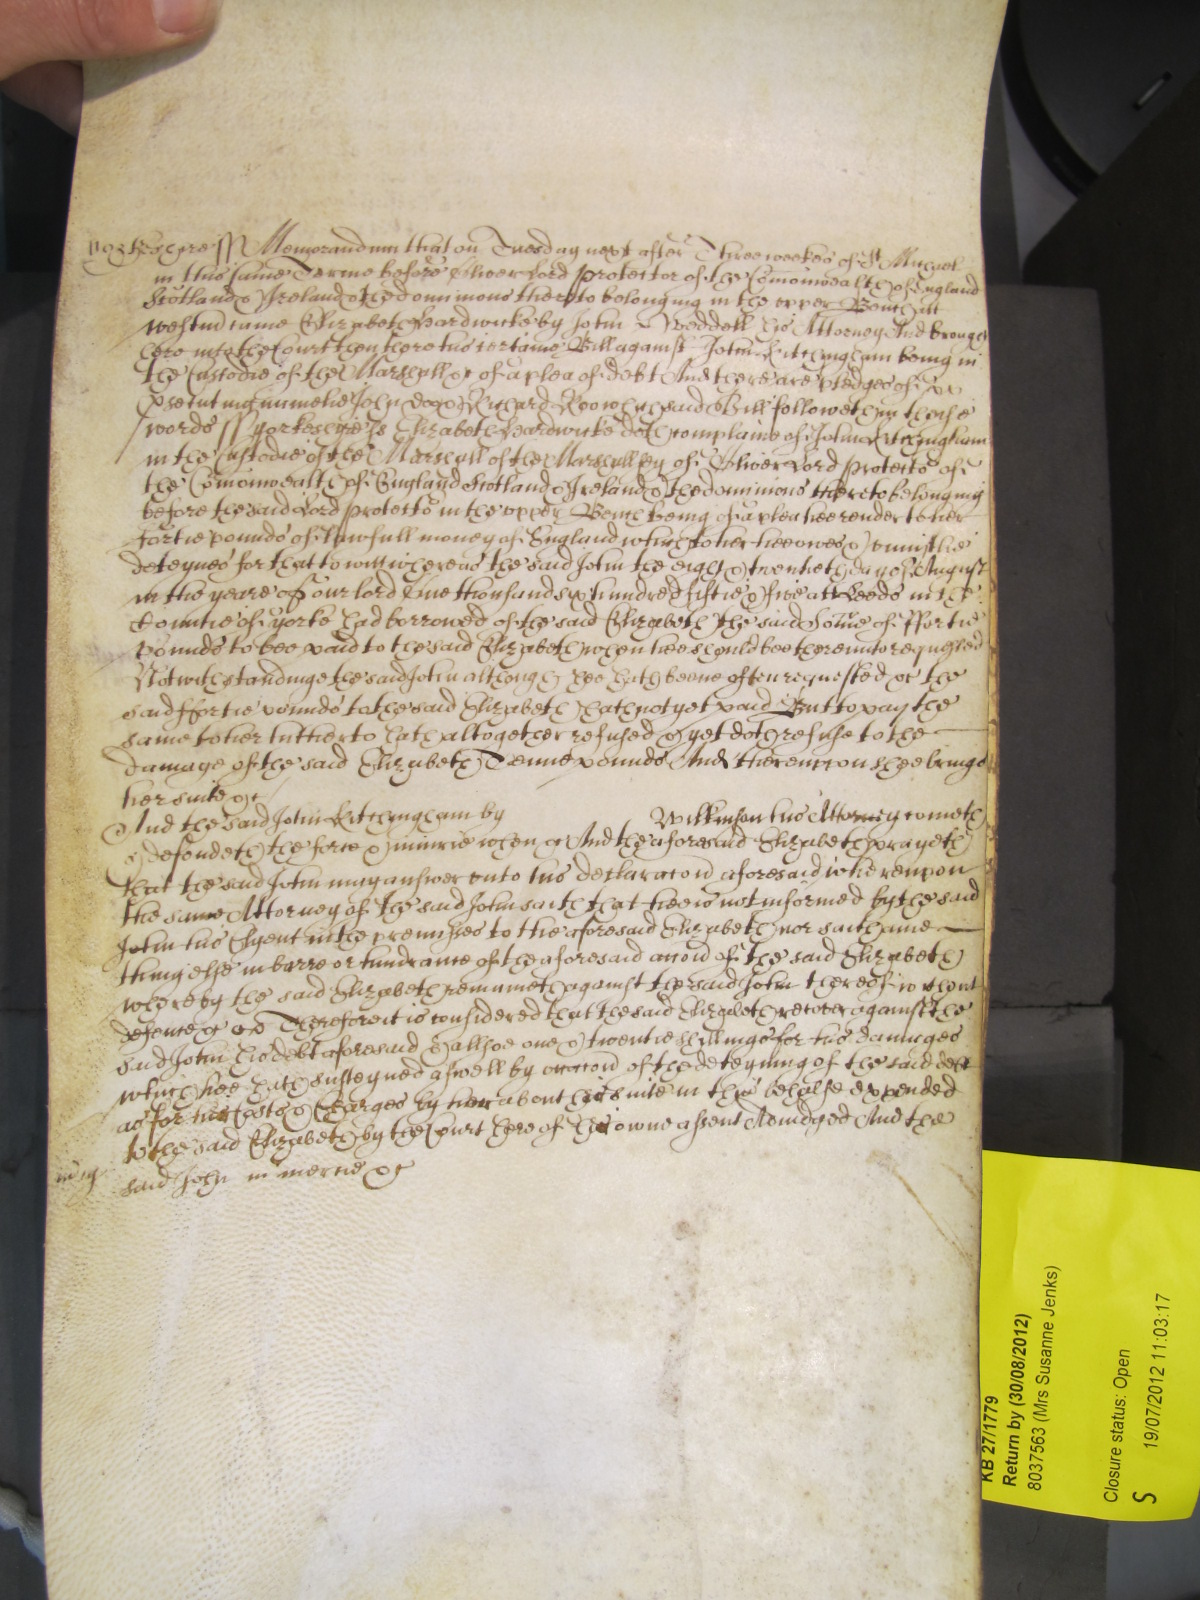 Yorkeshere ss Memorandum that on Tuesday next after Three weekes of St Michael
in this same Terme before Oliver Lord Protector of the Comonwealth of England
Scotland & Ireland & the dominions thereto belonging in the upper Bench att
Westminster came Elizabeth Hardwicke by John Weddell his Attorney And brought
here into the Court then there his certaine Bill against John Kitchingham being in
the Custodie of the Marshall &c of a plea of debt And there are pledges of
prosecuting namelie John Doo & Richard Roo which said Bill followeth in these
words ss Yorkeshere ss Elizabeth Hardwicke doth complaine of John Kitchingham
in the Custodie of the Marshall of the Marshallsey of Oliver Lord Protector of
the Comonwealth of England Scotland & Ireland & the dominions thereto belonging
before the said Lord Protector in the upper Bench being of a plea hee render to her
fortie pounds of lawfull money of England which to her hee owes & uniustlie
deteynes for that to witt whereas the said John the eight & twentieth day of August
in the yeare of our Lord One thousand six hundred fiftie & five att Leeds in the
Countie of Yorke had borrowed of the said Elizabeth the said Some of ffortie
pounds to bee paid to the said Elizabeth when hee should bee thereunto required
Notwithstandinge the said John although hee hath beene often requested &c the
said ffortie pounds to the said Elizabeth hath not yet paid But to pay the
same to her hitherto hath altogether refused & yet doth refuse to the
damage of the said Elizabeth Tenne pounds And thereupon shee brings
her suite &c
And the said John Kitchingham by Wilkinson his Attorney cometh
& defendeth the force & iniurie when &c And the aforesaid Elizabeth prayeth
that the said John may answer unto his declaracon aforesaid whereupon
the same Attorney of the said John saith that hee is not informed by the said
John his Clyent in the premisses to the aforesaid Elizabeth nor saith anie
thing else in barre or hindrance of the aforesaid accon of the said Elizabeth
whereby the said Elizabeth remaineth against the said John thereof without
defence &c Therefore it is considered that the said Elizabeth recover against the
said John his debt aforesaid & allsoe one & twentie shillings for his damages
which hee hath susteyned aswell by occacon of the deteyning of the said debt
as for his Costs & Charges by her about his suite in this behalfe expended
to the said Elizabeth by the Court here of his owne assent Adiudged And the
said John in mercie &c
KB 27/1779
Return by (30/08/2012)
8037563 (Mrs Susanne Jenks)
Closure status: Open
S 19/07/2012 11:03:17